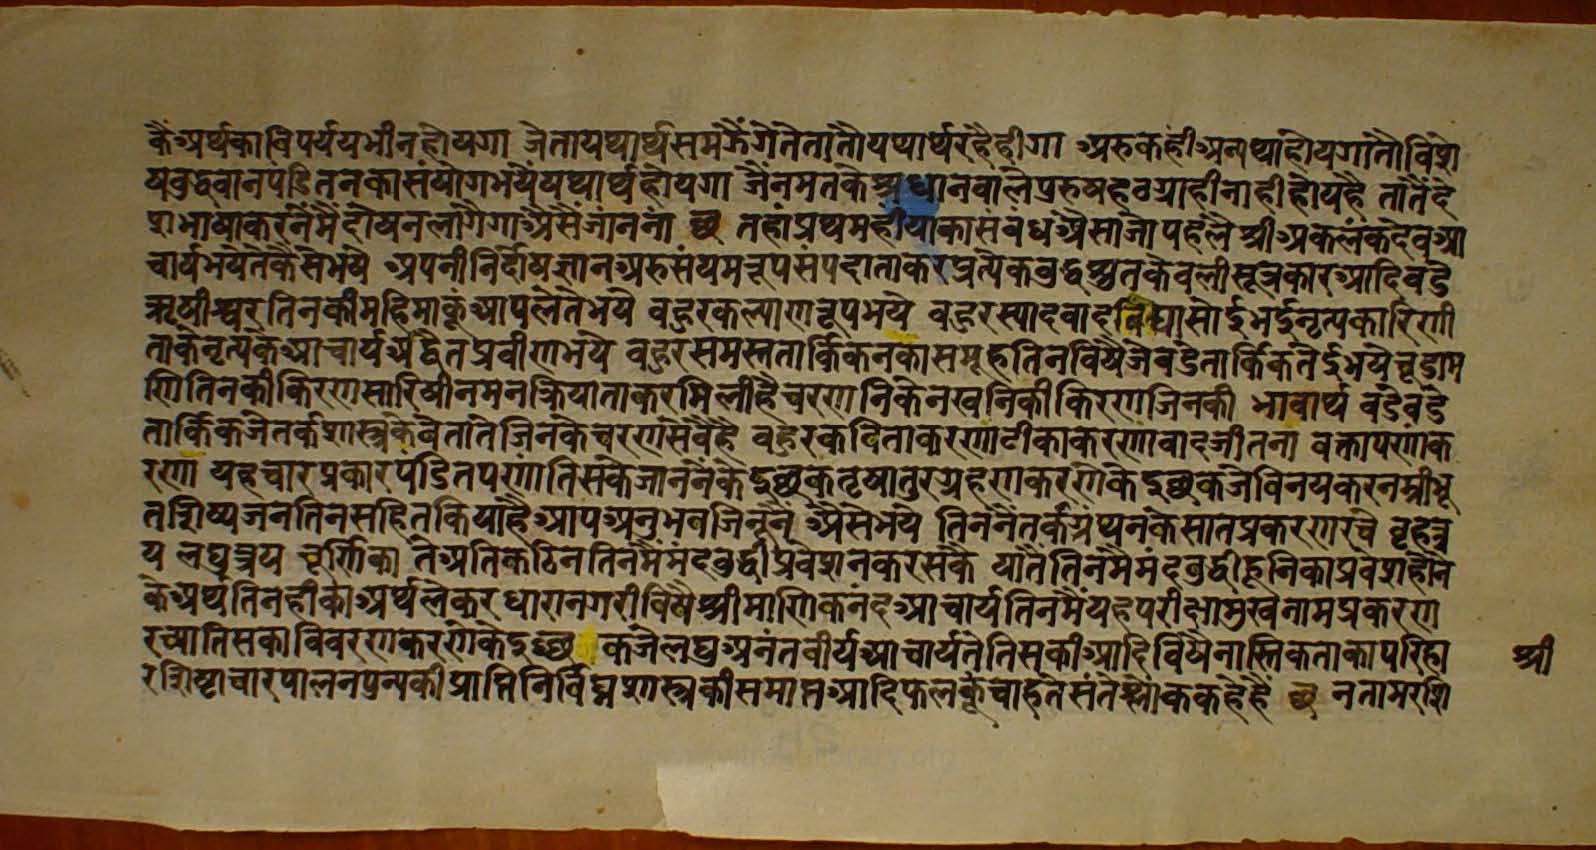 कैं अर्थका विपर्यय भी न होयगा जेता यथार्थ समझैंगे तेता तौ यथार्थ रहैहीगा अरु कही अन्यथा होयगा तौ विशे
ष बुद्धवान पंडितनका संयोग भयें यथार्थ होयगा जैनमतके श्रद्धानवाले पुरुष हठग्राही नाही होय है तातैं दे
शभाषा करनेमैं दोष न लागैगा अैसैं जाननां छ तहां प्रथमही याका संबंध अैसा जो पहले श्री अकलंकदेव आ
चार्य भये ते कैसे भये अपनी निर्दोष ज्ञान अरु संयमरूप संपदा ताकर प्रत्येकबुद्ध श्रुतकेवली सूत्रकार आदि बडे
ऋषीश्वर तिनकी महिमाकूं आप लेते भये बहुर कल्याणरूप भये बहुर स्यादवादविद्या सोई भई नृत्यकारिणी
ताके नृत्यके आचार्य अद्वैत प्रवीण भये बहुर समस्त तार्किकनका समूह तिनविषै जे बडे तार्किक तेई भये चूडाम
णि तिनकी किरण सारिषी नमनक्रिया ताकर मिली है चरणनिके नखनिकी किरण जिनकी भावार्थ बडे बडे
तार्किक जे तर्कशास्त्रके वेता ते जिनके चरण सेवै है बहुर कविता करणा टीका करणा वाद जीतना वक्तापणां क
रणा यह च्यार प्रकार पंडितपणां तिसके जाननेके इछुक तृषातुर ग्रहण करणेके इछुक जे विनयकर नम्रीभू
त शिष्यजन तिन सहित किया है आप अनुभव जिनूंनै अैसे भये तिननैं तर्कग्रंथनके सात प्रकरण रचे वृहत्र
य लघुत्रय चूर्णिका ते अति कठिन तिनमैं मंदबुद्धी प्रवेश न कर सकै यातैं तिनमै मंदबुद्धीहूनिका प्रवेश होने
के अर्थ तिनहीका अर्थ लेकर धारानगरी विषै श्री माणिकनंद आचार्य तिनमैं यह परीक्षामुखनाम प्रकरण
रच्या तिसका विवरण करणेके इछुक जे लघु अनंतवीर्य आचार्य ते तिसकी आदि विषै नास्तिकताका परिहा
र शिष्टाचारपालन पुन्यकी प्राप्ति निर्विघ्न शास्त्रकी समाप्त आदि फलकूं चाहते संते श्लोक कहै हैं छ नतामरशि
श्री